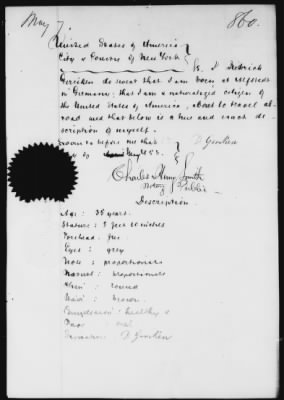 May 7.
860.
United States of America
City & County of New York
do swear that I am born at
in Germany; that I am a naturalized citizen of
the United States of America, about to travel ab-
road and that below is a true and exact de-
scription of myself.
Sworn to before me this
Charles Henry Smith
Notary Public
Description
Age: 35 years.
Stature: 5 feet 10 inches
Forehead: free
Eyes: grey
Nose: proportionate
Mouth: proportionate
Chin: round
Hair: brown
Complexion: healthy
Face: oval
Signature: